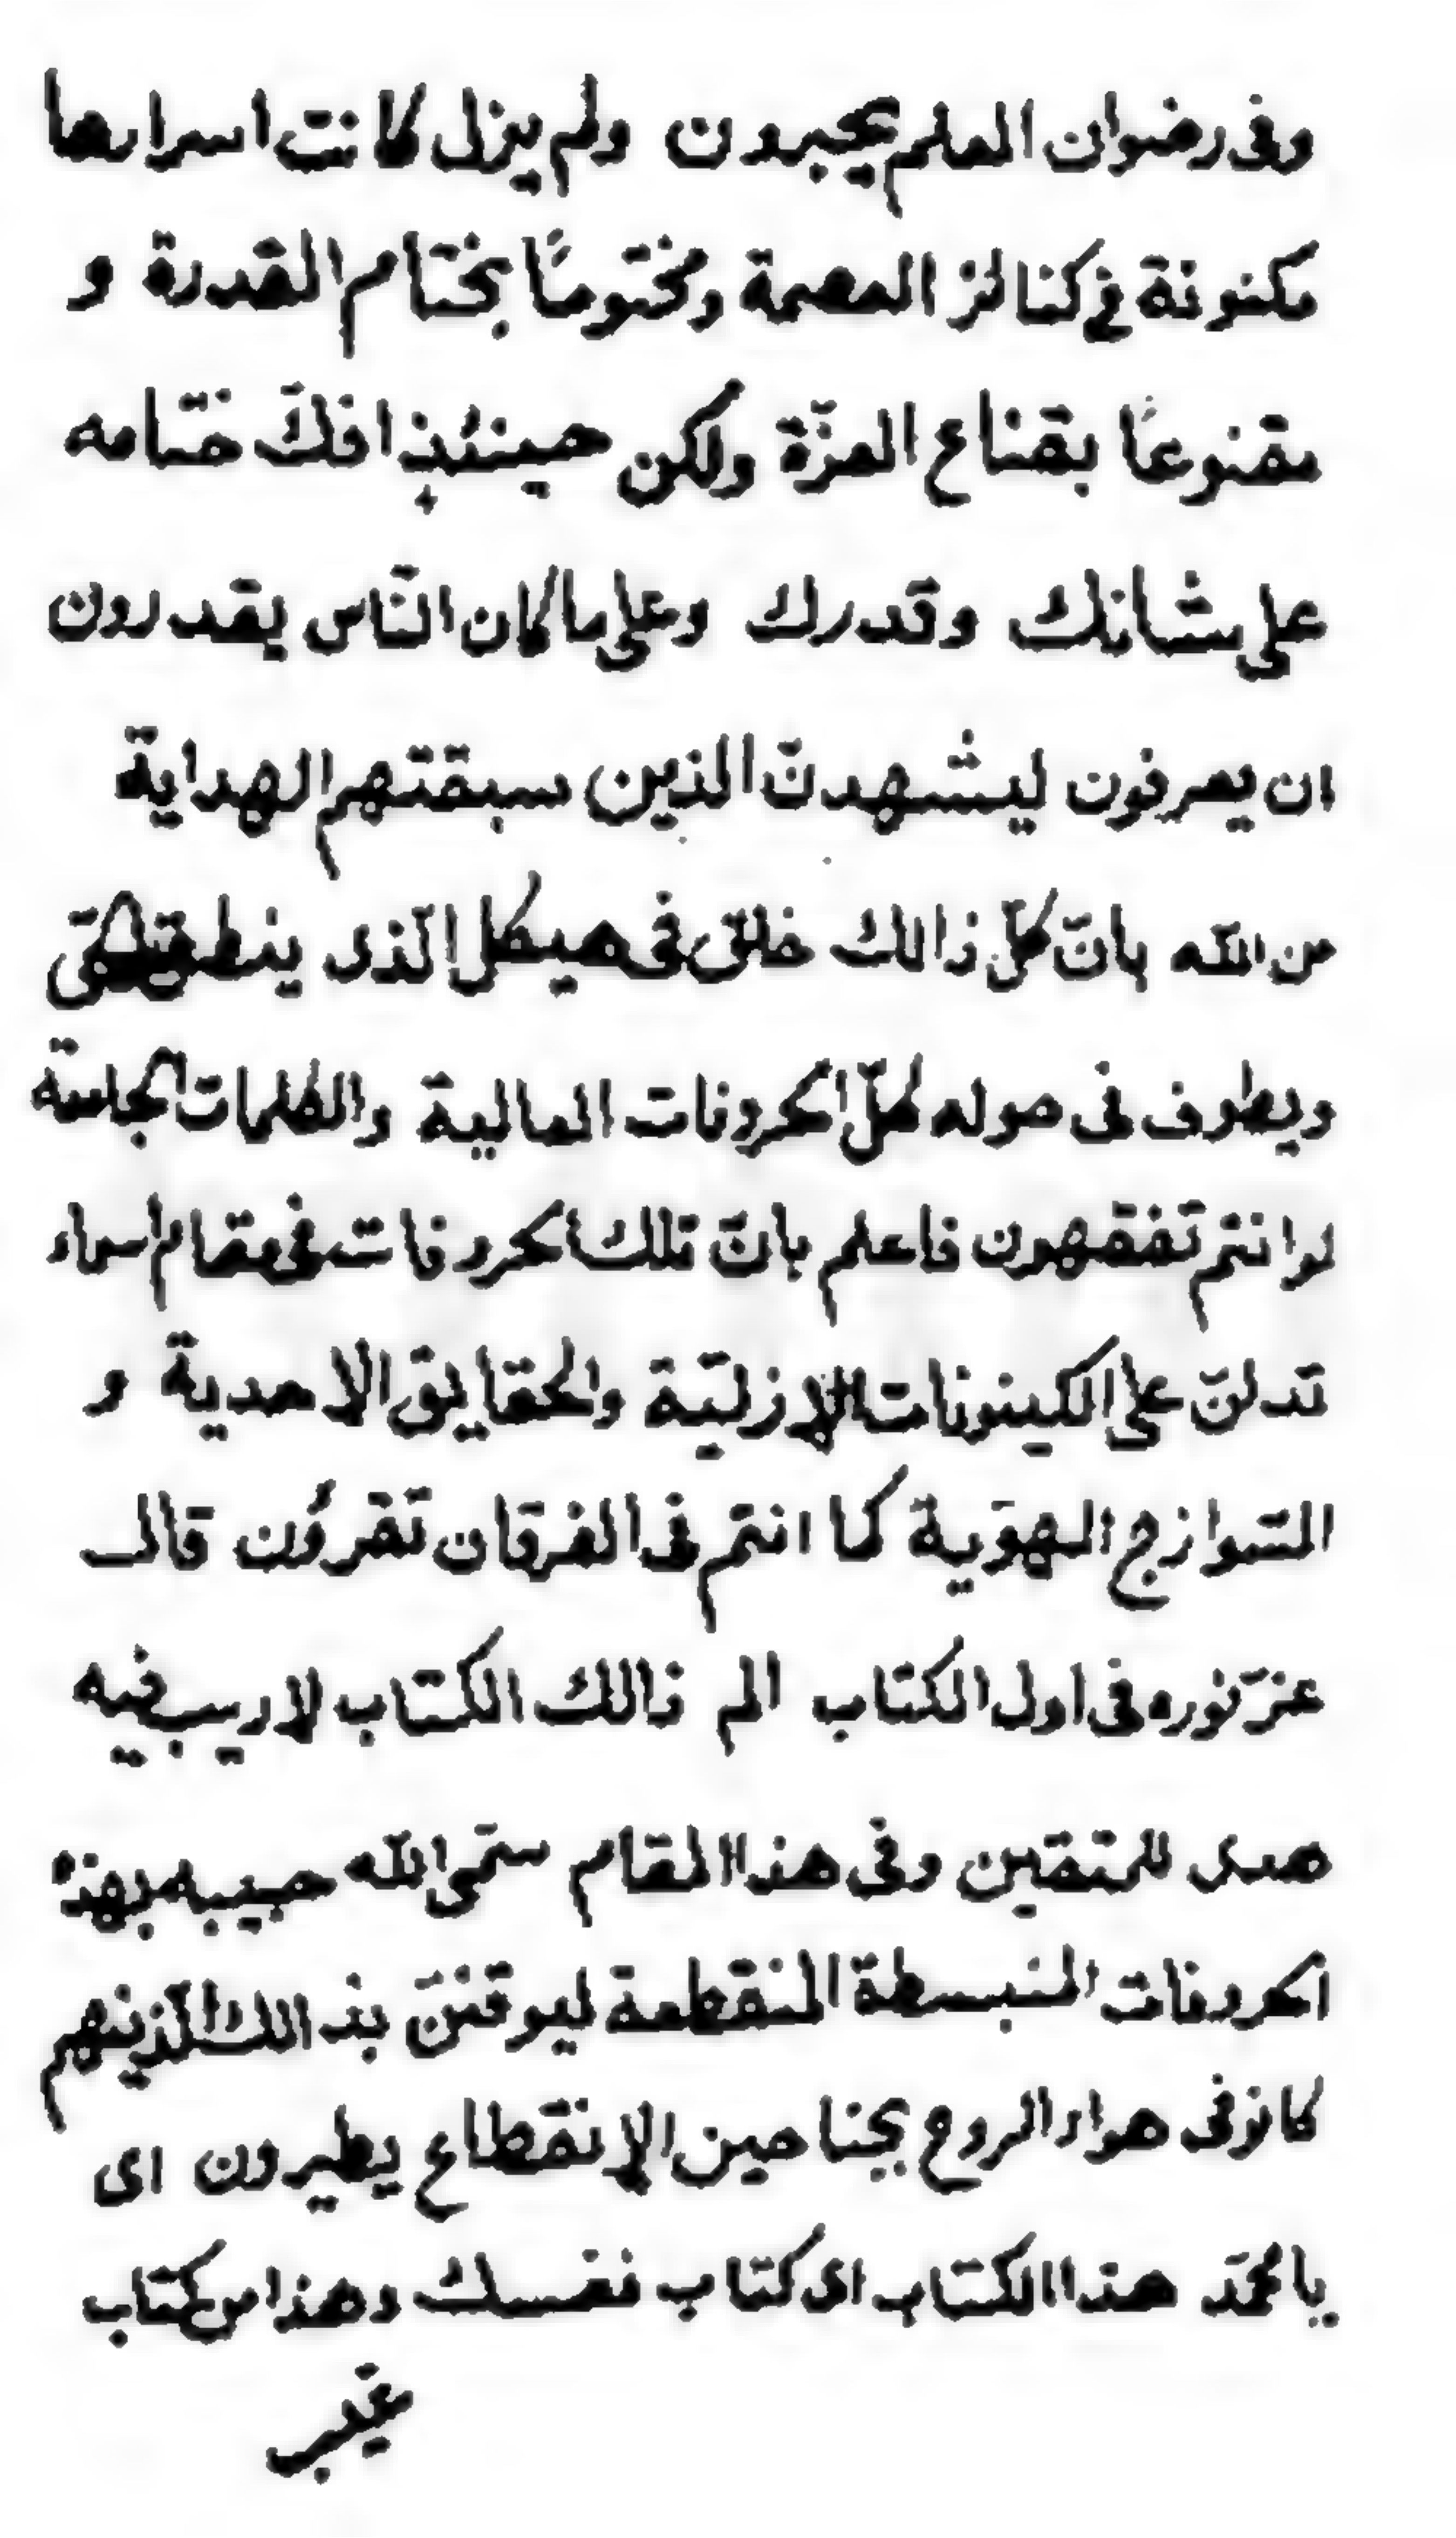 وفى رضوان العلم يحبرون ولم يزل كانت اسرارها
مكنونة فى كنائز العصمة ومختومًا بختام القدرة و
مقنوعًا بقناع العزّة ولكن حينئذٍ افكّ ختامه
على شانك وقدرك وعلى ما كان النّاس يقدرون
ان يعرفون ليشهدنّ الذين سبقتهم الهداية
من اللّه بانّ كلّ ذالك خلق فى هيكل الّذى ينطق
ويطوف فى حوله كلّ الحروفات العالية والكلمات الجامعة
لو انتم تفقهون فاعلم بانّ تلك الحروفات فى مقام اسماء
تدلنّ على الكينونات الازليّة والحقايق الاحدية و
السّوازج الهوّية كما انتم فى الفرقان تقرؤن قال
عزّ نوره فى اول الكتاب الم ذالك الكتاب لا ريب فيه
هدى للمتّقين وفى هذا المقام سمّى اللّه حبيبه بهذه
الحروفات المنبسطة المنقطعة ليوقننّ بذالك الّذينهم
كانو فى هواء الروح بجناحين الإنقطاع يطيرون اى
يا محمّد هذا الكتاب اى كتاب نفسك وهذا من كتاب
غيب